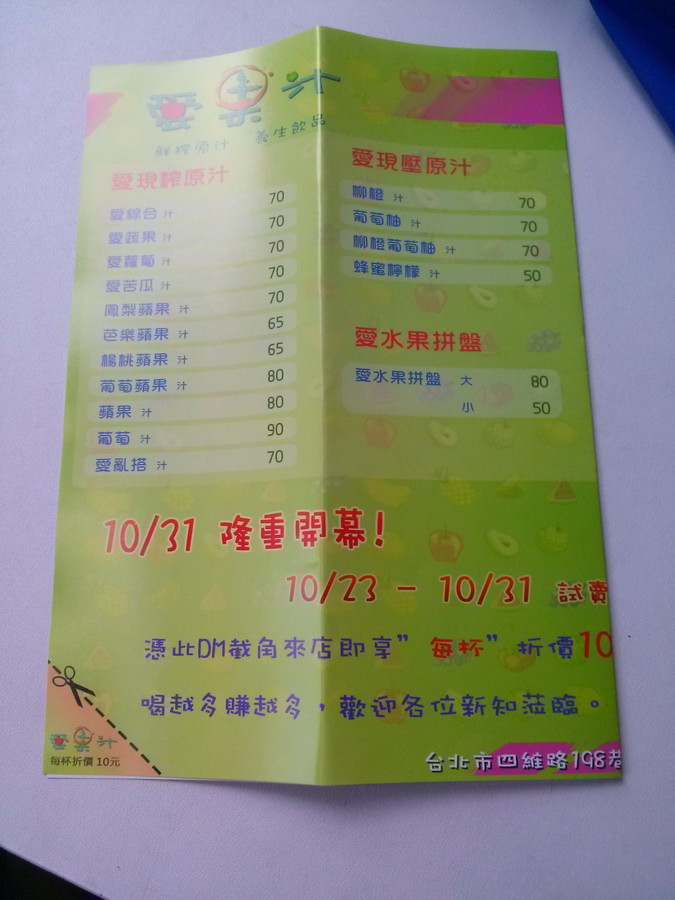 愛果汁
鮮榨原汁 養生飲品
愛現榨原汁
愛綜合 汁 70
愛蔬果 汁 70
愛蘿蔔 汁 70
愛苦瓜 汁 70
鳳梨蘋果 汁 70
芭樂蘋果 汁 65
楊桃蘋果 汁 65
葡萄蘋果 汁 80
蘋果 汁 80
葡萄 汁 90
愛亂搭 汁 70
愛現壓原汁
柳橙 汁 70
葡萄柚 汁 70
柳橙葡萄柚 汁 70
蜂蜜檸檬 汁 50
愛水果拼盤
愛水果拼盤 大 80
小 50
10/31 隆重開幕!
10/23 - 10/31 試賣
憑此DM截角來店即享”每杯”折價10
喝越多賺越多，歡迎各位新知蒞臨。
愛果汁
每杯折價10元
台北市四維路198巷